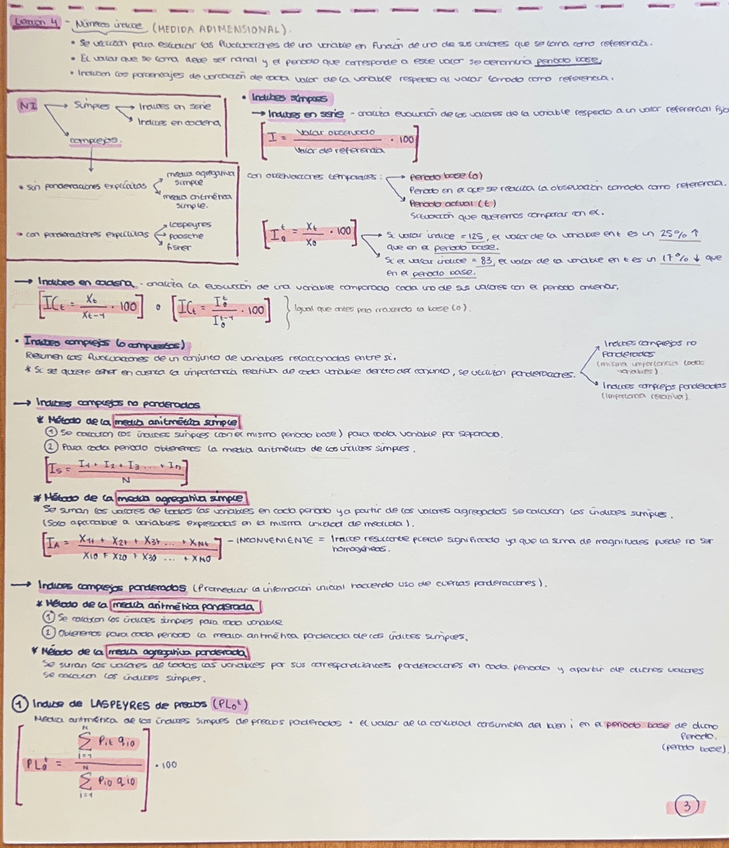 Lección 4 - Números índice (MEDIDA ADIMENSIONAL).
• Se utilizan para estudiar las fluctuaciones de una variable en función de uno de sus valores que se toma como referencia.
• El valor que se toma debe ser normal y el periodo que corresponde a este valor se denomina periodo base.
• Indican los porcentajes de variación de cada valor de la variable respecto al valor tomado como referencia.
NI → Simples → Índices en serie
→ Índices en cadena
→ complejos.
• sin ponderaciones explícitas → media agregativa simple
→ media aritmética simple.
• con ponderaciones explícitas → laspeyres
→ paasche
→ fisher
• Índices simples
→ Índices en serie - analiza evolución de los valores de la variable respecto a un valor referencial fijo
[I = Valor observado / Valor de referencia · 100]
con observaciones temporales: → Periodo base (0)
Periodo en el que se realiza la observación tomada como referencia.
→ Periodo actual (t)
Situación que queremos comparar con él.
[I₀ᵗ = Xt / X0 · 100] → Si valor índice = 125, el valor de la variable en t es un 25% ↑
que en el periodo base.
→ Si el valor índice = 83, el valor de la variable en t es un 17% ↓ que
en el periodo base.
→ Índices en cadena - analiza la evolución de una variable comparando cada uno de sus valores con el periodo anterior.
[ICt = Xt / Xt-1 · 100] o [ICt = I₀ᵗ / I₀ᵗ⁻¹ · 100] } Igual que antes pero moviendo la base (0).
• Índices complejos (o compuestos)
Resumen las fluctuaciones de un conjunto de variables relacionadas entre sí.
* Si se quiere tener en cuenta la importancia relativa de cada variable dentro del conjunto, se utilizan ponderaciones.
→ Índices complejos no ponderados
(misma importancia todas variables)
→ Índices complejos ponderados
(importancia relativa).
→ Índices complejos no ponderados
* Método de la media aritmética simple
① Se calculan los índices simples (con el mismo periodo base) para cada variable por separado.
② Para cada periodo obtenemos la media aritmética de los índices simples.
[Is = I1 + I2 + I3 ... + In / N]
* Método de la media agregativa simple
Se suman los valores de todas las variables en cada periodo y a partir de los valores agregados se calculan los índices simples.
(Solo aplicable a variables expresadas en la misma unidad de medida).
[IA = X1t + X2t + X3t ... + XNt / X10 + X20 + X30 ... + XN0] - INCONVENIENTE = Índice resultante pierde significado ya que la suma de magnitudes puede no ser
homogéneas.
→ Índices complejos ponderados (Promediar la información inicial haciendo uso de ciertas ponderaciones).
* Método de la media aritmética ponderada
① Se calculan los índices simples para cada variable
② Obtenemos para cada periodo la media aritmética ponderada de los índices simples.
* Método de la media agregativa ponderada
Se suman los valores de todas las variables por sus correspondientes ponderaciones en cada periodo y a partir de dichos valores
se calculan los índices simples.
① Índice de LASPEYRES de precios (PL₀ᵗ)
Media aritmética de los índices simples de precios ponderados · el valor de la cantidad consumida del bien i en el periodo base de dicho
periodo.
(periodo base)
[PL₀ᵗ = N Σ i=1 Pit qi0 / N Σ i=1 Pi0 qi0] · 100
3